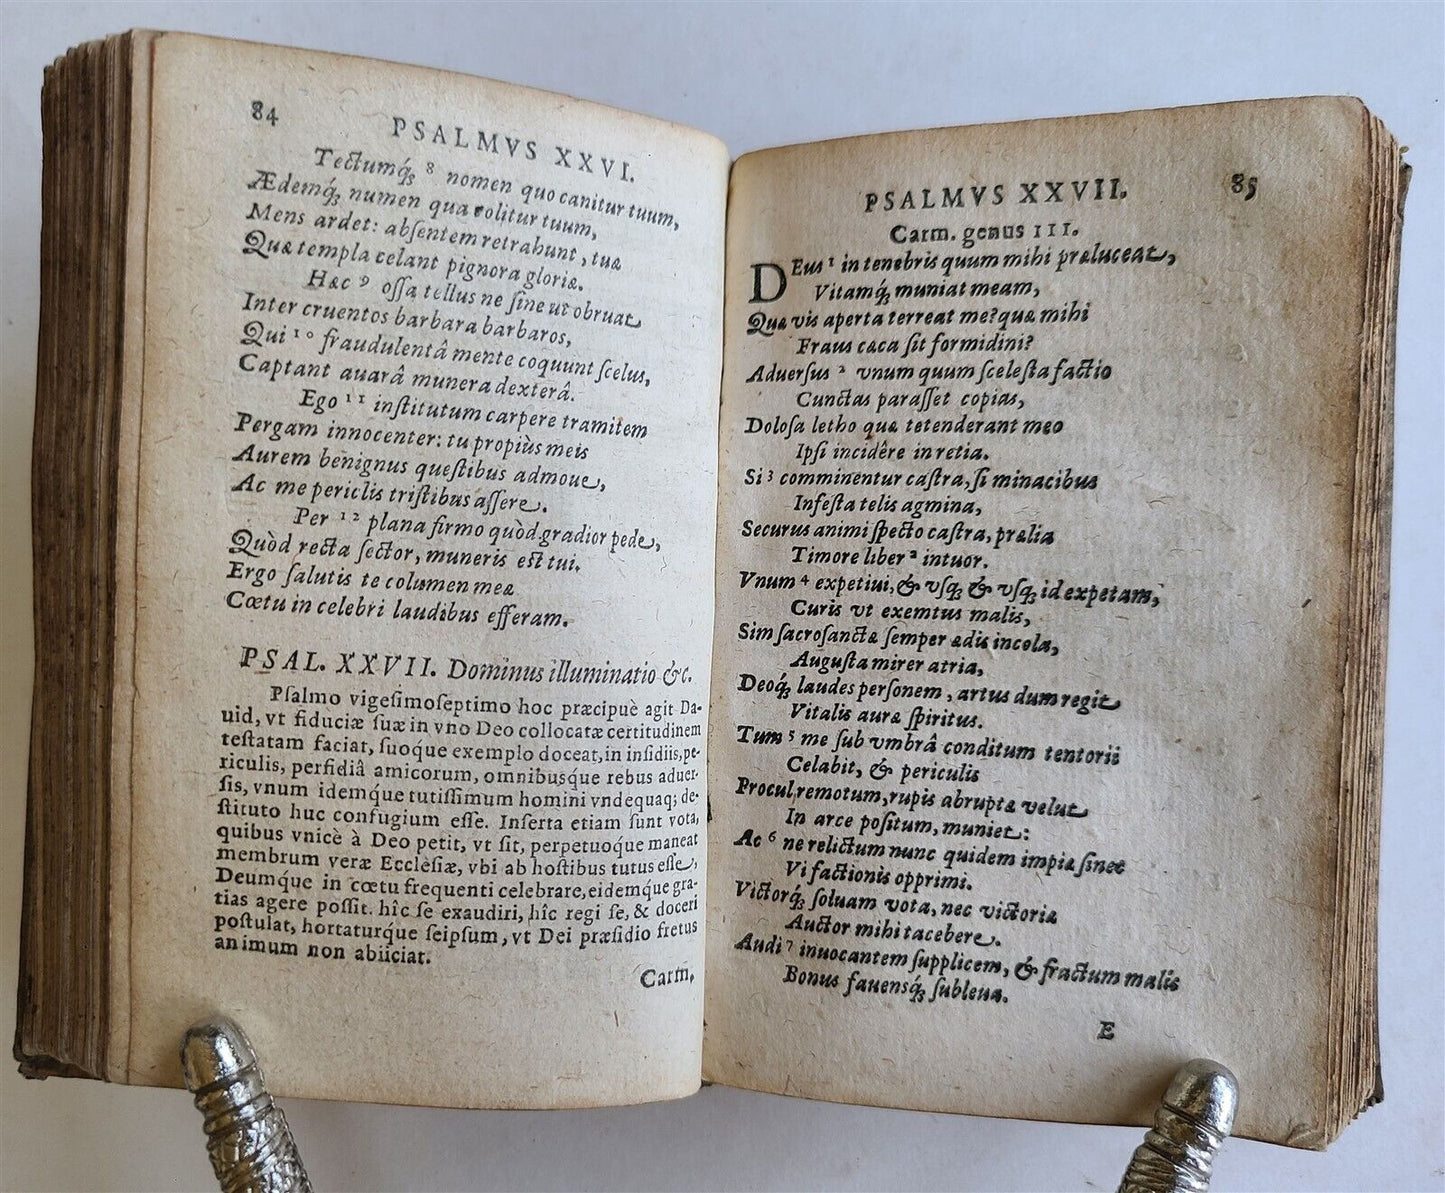 84
PSALMVS XXVI.
Tectumq́ꝫ 8 nomen quo canitur tuum,
Ædemq́ꝫ numen qua colitur tuum,
Mens ardet: abſentem retrahunt, tuæ
Quæ templa celant pignora gloriæ.
Hæc 9 oſſa tellus ne ſine ut obruat
Inter cruentos barbara barbaros,
Qui 10 fraudulentâ mente coquunt ſcelus,
Captant auarâ munera dexterâ.
Ego 11 inſtitutum carpere tramitem
Pergam innocenter: tu propiùs meis
Aurem benignus queſtibus admoue,
Ac me periclis triſtibus aſſere.
Per 12 plana firmo quòd gradior pede,
Quòd recta ſector, muneris eſt tui.
Ergo ſalutis te columen meæ
Cœtu in celebri laudibus efferam.
PSAL. XXVII. Dominus illuminatio &c.
Pſalmo vigeſimoſeptimo hoc præcipuè agit Da-
uid, vt fiduciæ ſuæ in vno Deo collocatæ certitudinem
teſtatam faciat, ſuoque exemplo doceat, in inſidiis, pe-
riculis, perfidiâ amicorum, omnibusque rebus aduer-
ſis, vnum idemque tutiſſimum homini vndequaq; de-
ſtituto huc confugium eſſe. Inſerta etiam ſunt vota,
quibus vnicè à Deo petit, vt ſit, perpetuoque maneat
membrum veræ Eccleſiæ, vbi ab hoſtibus tutus eſſe,
Deumque in cœtu frequenti celebrare, eidemque gra-
tias agere poſſit. hîc ſe exaudiri, hîc regi ſe, & doceri
poſtulat, hortaturque ſeipſum, vt Dei præſidio fretus
animum non abiiciat.
Carm.
PSALMVS XXVII.
85
Carm. genus III.
DEus 1 in tenebris quum mihi præluceat,
Vitamq́ꝫ muniat meam,
Quæ vis aperta terreat me? quæ mihi
Fraus cæca ſit formidini?
Aduerſus 2 vnum quum ſceleſta factio
Cunctas paraſſet copias,
Doloſa letho quæ tetenderant meo
Ipſi incidêre in retia.
Si 3 comminentur caſtra, ſi minacibus
Infeſta telis agmina,
Securus animi ſpecto caſtra, prælia
Timore liber intuor.
Vnum 4 expetiui, & vſq́ꝫ & vſq́ꝫ id expetam,
Curis vt exemtus malis,
Sim ſacroſanctæ ſemper ædis incola,
Auguſta mirer atria,
Deoq́ꝫ laudes perſonem, artus dum regit
Vitalis auræ ſpiritus.
Tum 5 me ſub vmbrâ conditum tentorii
Celabit, & periculis
Procul remotum, rupis abruptæ velut
In arce poſitum, muniet:
Ac 6 ne relictum nunc quidem impiæ ſinet
Vi factionis opprimi.
Victorq́ꝫ ſoluam vota, nec victoriæ
Auctor mihi tacebere.
Audi 7 inuocantem ſupplicem, & fractum malis
Bonus fauensq́ꝫ ſubleua.
E